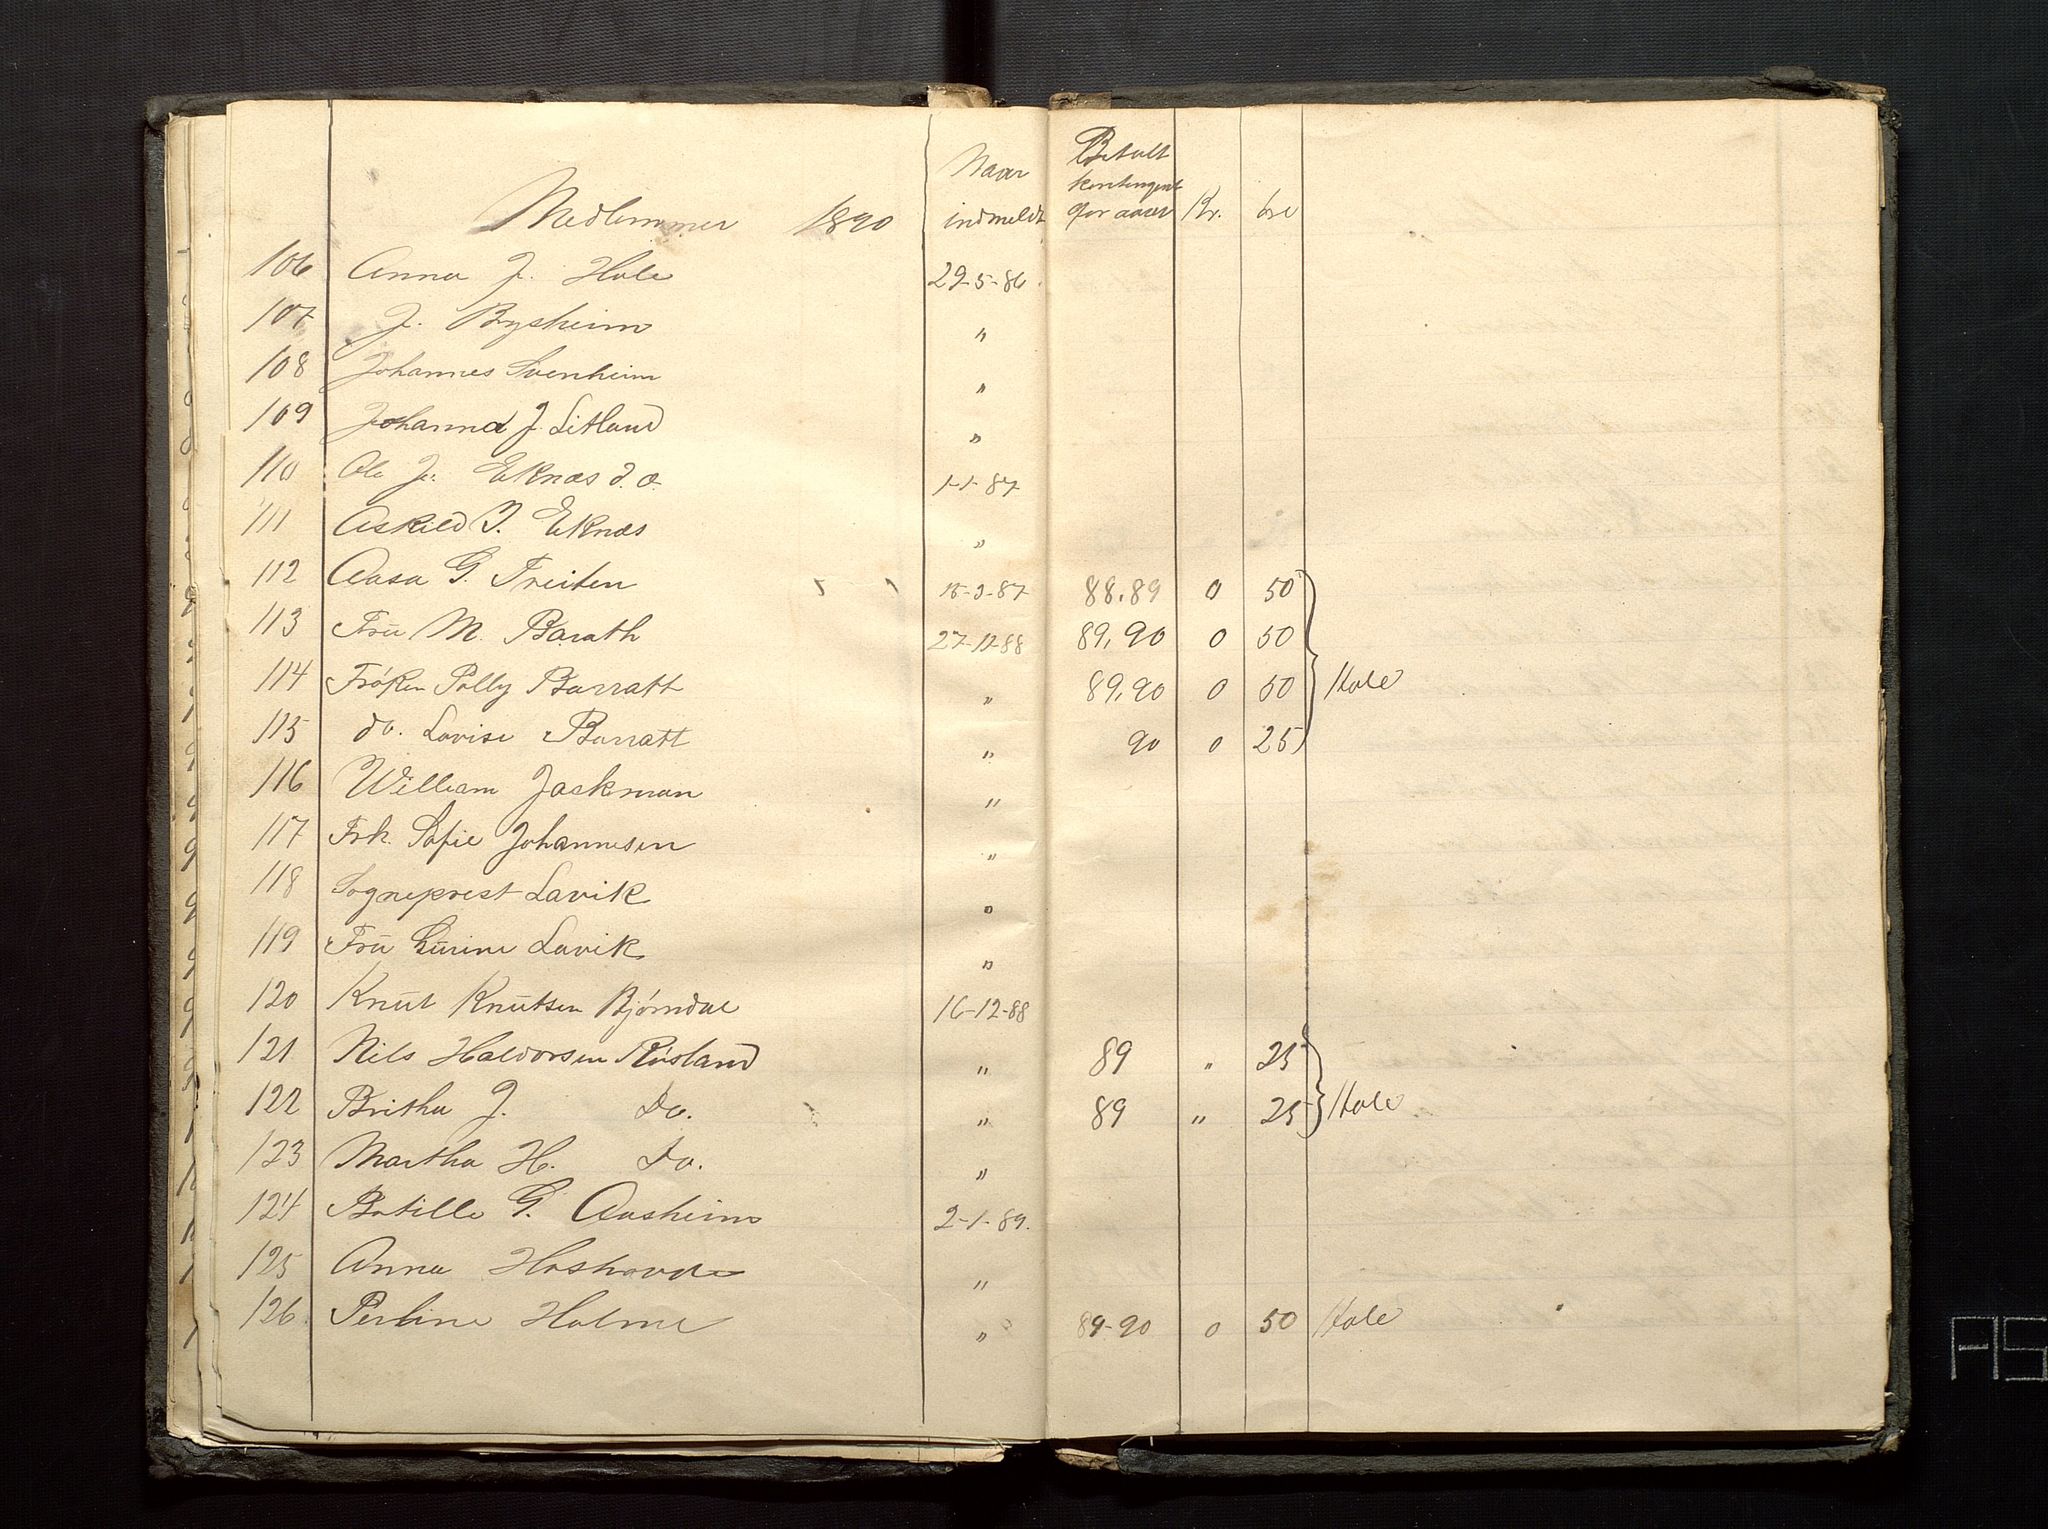 Medlemmer 1890 Naar indmeldt Betalt kontingent for aaret Kr. öre
106 Anna J. Hole 29-5-86.
107 J. Bysheim "
108 Johannes Svenheim "
109 Johanna J. Litland "
110 Ole J. Eknæs d.æ. 1-1-87
111 Askild J. Eknæs "
112 Aasa G. Treiten 15-3-87 88.89 0 50
113 Frü M. Barath 27-11-88 89,90 0 50
114 Frøken Polly Barratt " 89,90 0 50 Hole
115 do. Lovise Barratt " 90 0 25
116 William Jackman "
117 Frk. Sofie Johannesen "
118 Sogneprest Lavik "
119 Frü Lavik "
120 Knüt Knütsen Bjørndal 16-12-88
121 Nils Haldorsen Rüsland " 89 " 25
122 Britha J. Do. " 89 " 25 Hole
123 Martha H. Do. "
124 Botille G. Aasheim 2-1-89.
125 Anna "
126 Perline Holme " 89-90 0 50 Hole